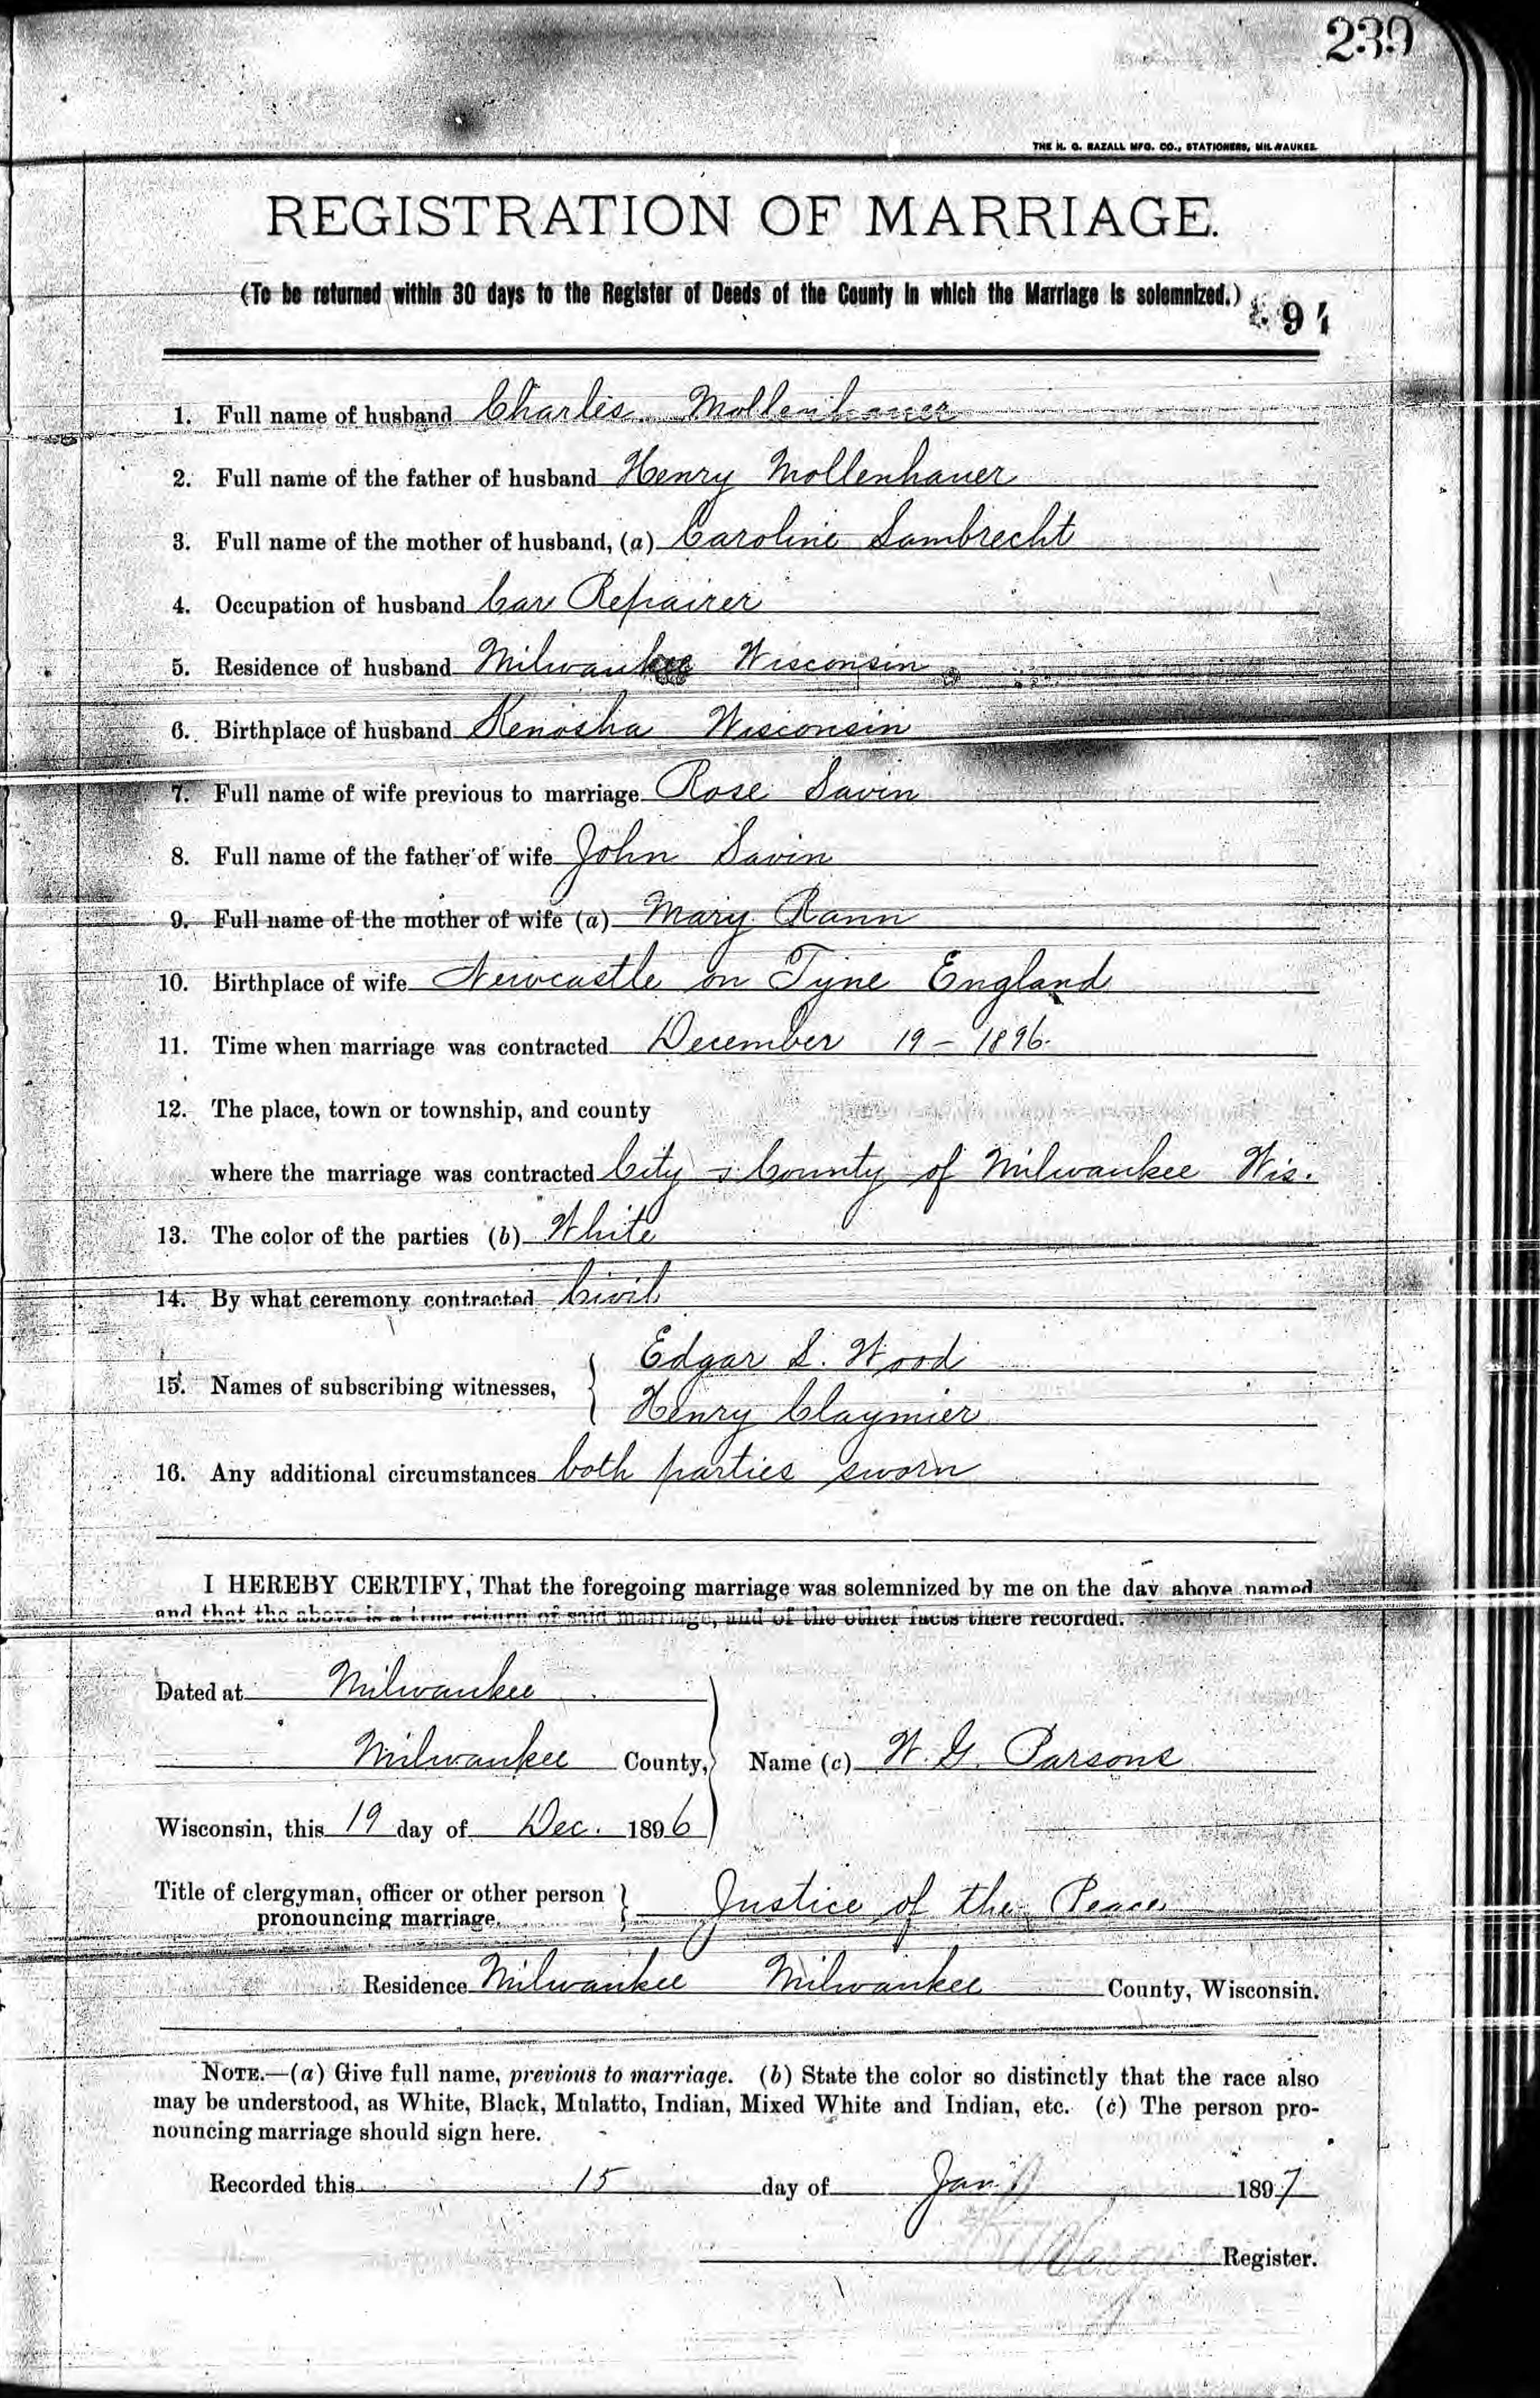 239
THE H. G. RAZALL MFG. CO., STATIONERS, MILWAUKEE.
REGISTRATION OF MARRIAGE.
(To be returned within 30 days to the Register of Deeds of the County in which the Marriage is solemnized.)
1. Full name of husband Charles Mollenhauer
2. Full name of the father of husband Henry Mollenhauer
3. Full name of the mother of husband, (a) Caroline Lambrecht
4. Occupation of husband Car Repairer
5. Residence of husband Milwaukee Wisconsin
6. Birthplace of husband Kenosha Wisconsin
7. Full name of wife previous to marriage Rose Savin
8. Full name of the father of wife John Savin
9. Full name of the mother of wife (a) Mary Rann
10. Birthplace of wife Newcastle on Tyne England
11. Time when marriage was contracted December 19 - 1896.
12. The place, town or township, and county
where the marriage was contracted City & County of Milwaukee Wis.
13. The color of the parties (b) White
14. By what ceremony contracted Civil
Edgar L. Wood
15. Names of subscribing witnesses,
Henry Claymier
16. Any additional circumstances both parties sworn
I HEREBY CERTIFY, That the foregoing marriage was solemnized by me on the day above named
and that the above is a true return of said marriage, and of the other facts there recorded.
Dated at Milwaukee
Milwaukee County, Name (c) W. G. Parsons
Wisconsin, this 19 day of Dec. 1896
Title of clergyman, officer or other person
pronouncing marriage. Justice of the Peace
Residence Milwaukee Milwaukee County, Wisconsin.
NOTE.—(a) Give full name, previous to marriage. (b) State the color so distinctly that the race also
may be understood, as White, Black, Mulatto, Indian, Mixed White and Indian, etc. (c) The person pro-
nouncing marriage should sign here.
Recorded this 15 day of Jan. 1897
Register.